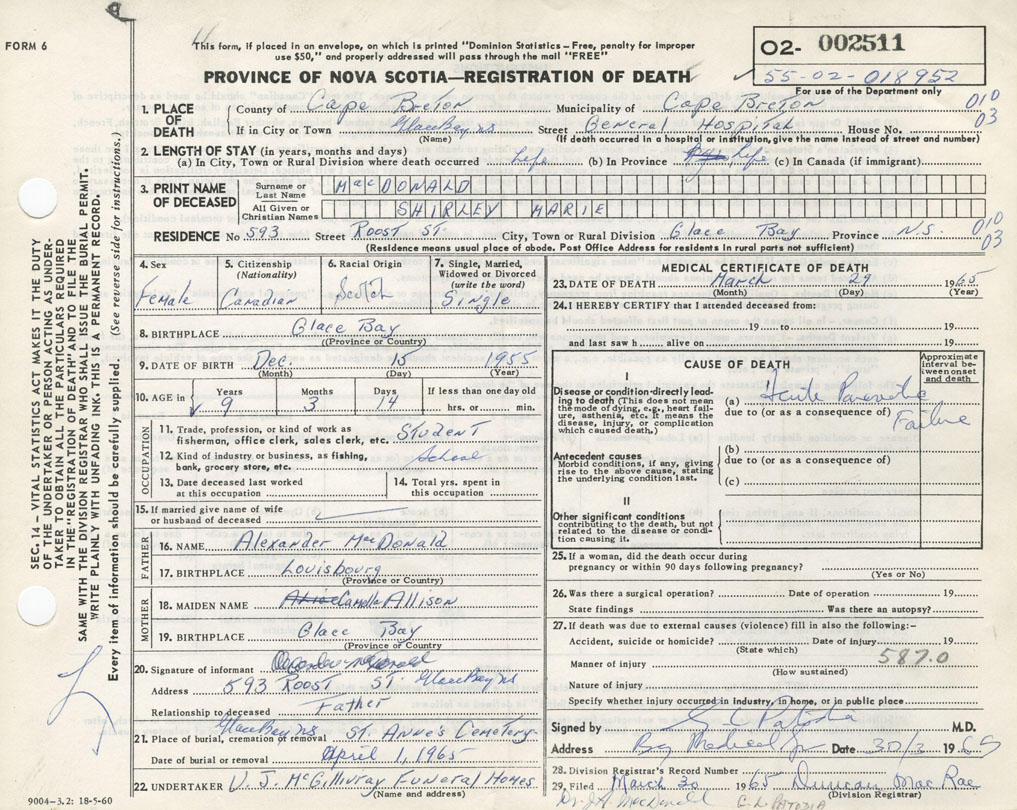 FORM 6
This form, if placed in an envelope, on which is printed "Dominion Statistics – Free, penalty for improper
use $50," and properly addressed will pass through the mail "FREE"
PROVINCE OF NOVA SCOTIA—REGISTRATION OF DEATH
02- 002511
55-02-018952
For use of the Department only
SEC. 14 – VITAL STATISTICS ACT MAKES IT THE DUTY
OF THE UNDERTAKER OR PERSON ACTING AS UNDER-
TAKER TO OBTAIN ALL THE PARTICULARS REQUIRED
IN THE "REGISTRATION OF DEATH" AND TO FILE THE
SAME WITH THE DIVISION REGISTRAR WHO SHALL ISSUE THE BURIAL PERMIT.
WRITE PLAINLY WITH UNFADING INK. THIS IS A PERMANENT RECORD.
Every item of information should be carefully supplied. (See reverse side for instructions.)
1. PLACE OF DEATH
County of Cape Breton Municipality of Cape Breton 010
If in City or Town Glace Bay ns Street General Hospital House No. 03
(Name) (If death occurred in a hospital or institution, give name instead of street and number)
2. LENGTH OF STAY (in years, months and days)
(a) In City, Town or Rural Division where death occurred Life (b) In Province life (c) In Canada (if immigrant)
3. PRINT NAME OF DECEASED
Surname or Last Name MacDONALD
All Given or Christian Names SHIRLEY MARIE
RESIDENCE No 593 Street ROOST ST. City, Town or Rural Division Glace Bay Province N.S. 010 03
(Residence means usual place of abode. Post Office Address for residents in rural parts not sufficient)
4. Sex Female
5. Citizenship (Nationality) Canadian
6. Racial Origin Scotch
7. Single, Married, Widowed or Divorced (write the word) Single
8. BIRTHPLACE Glace Bay
(Province or Country)
9. DATE OF BIRTH Dec. 15 1955
(Month) (Day) (Year)
10. AGE in Years 9 Months 3 Days 14 If less than one day old hrs. or min.
OCCUPATION
11. Trade, profession, or kind of work as fisherman, office clerk, sales clerk, etc. STUDENT
12. Kind of industry or business, as fishing, bank, grocery store, etc. School
13. Date deceased last worked at this occupation
14. Total yrs. spent in this occupation
15. If married give name of wife or husband of deceased
FATHER
16. NAME Alexander MacDonald
17. BIRTHPLACE Louisbourg
(Province or Country)
MOTHER
18. MAIDEN NAME Camella Allison
19. BIRTHPLACE Glace Bay
(Province or Country)
20. Signature of informant Alexander McDonald
Address 593 ROOST ST. Glace Bay ns
Relationship to deceased Father
21. Place of burial, cremation or removal Glace Bay ns St. Anne's Cemetery
Date of burial or removal April 1, 1965
22. UNDERTAKER V. J. McGillivray Funeral Homes
(Name and address)
9004–3.2: 18-5-60
MEDICAL CERTIFICATE OF DEATH
23. DATE OF DEATH March 29 1965
(Month) (Day) (Year)
24. I HEREBY CERTIFY that I attended deceased from:
19 to 19
and last saw h alive on 19
CAUSE OF DEATH
Approximate interval between onset and death
I
Disease or condition directly leading to death (This does not mean the mode of dying, e.g., heart failure, asthenia, etc. It means the disease, injury, or complication which caused death.)
(a) Acute Failure
due to (or as a consequence of)
Antecedent causes
Morbid conditions, if any, giving rise to the above cause, stating the underlying condition last.
(b)
due to (or as a consequence of)
(c)
II
Other significant conditions
contributing to the death, but not related to the disease or condition causing it.
25. If a woman, did the death occur during
pregnancy or within 90 days following pregnancy?
(Yes or No)
26. Was there a surgical operation? Date of operation 19
State findings Was there an autopsy?
27. If death was due to external causes (violence) fill in also the following:–
Accident, suicide or homicide? Date of injury 19
(State which)
587.0
Manner of injury
(How sustained)
Nature of injury
Specify whether injury occurred in industry, in home, or in public place
Signed by M.D.
Address Bay Medical Date 30/3 1965
28. Division Registrar's Record Number
29. Filed March 30 1965 Duncan MacRae
(Division Registrar)